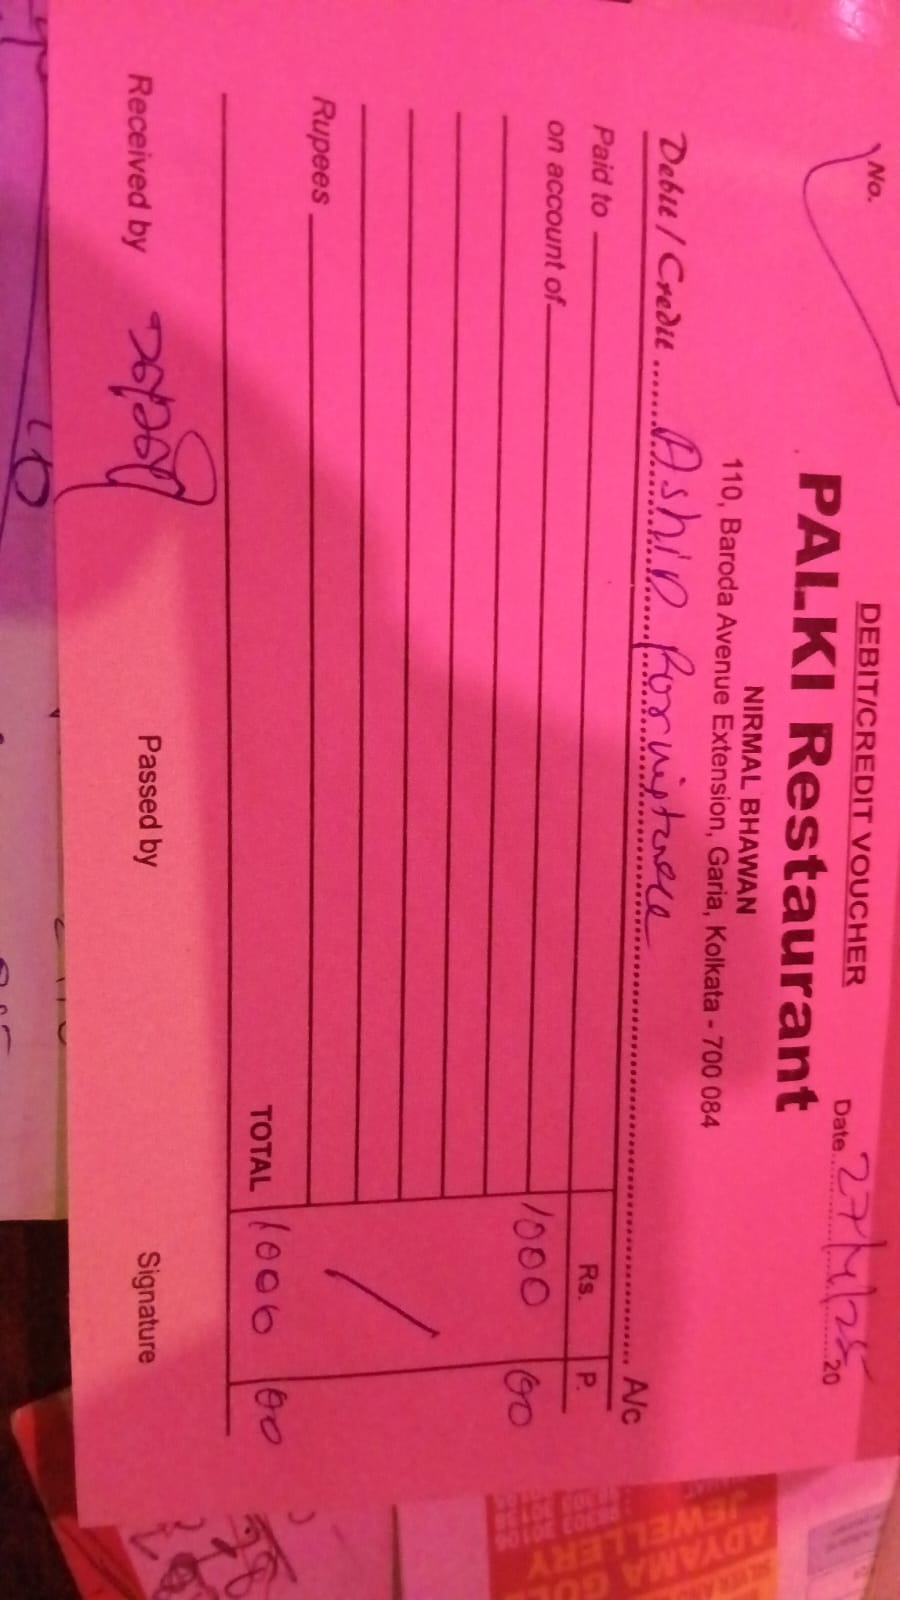 DEBIT/CREDIT VOUCHER
No.
Date 27/4/25 20
PALKI Restaurant
NIRMAL BHAWAN
110, Baroda Avenue Extension, Garia, Kolkata - 700 084
Debit / Credit Ashis A/c
Paid to Rs. P.
on account of 1000 00
Rupees
TOTAL 1000 00
Received by Passed by Signature
ADYAMA
JEWELLERY